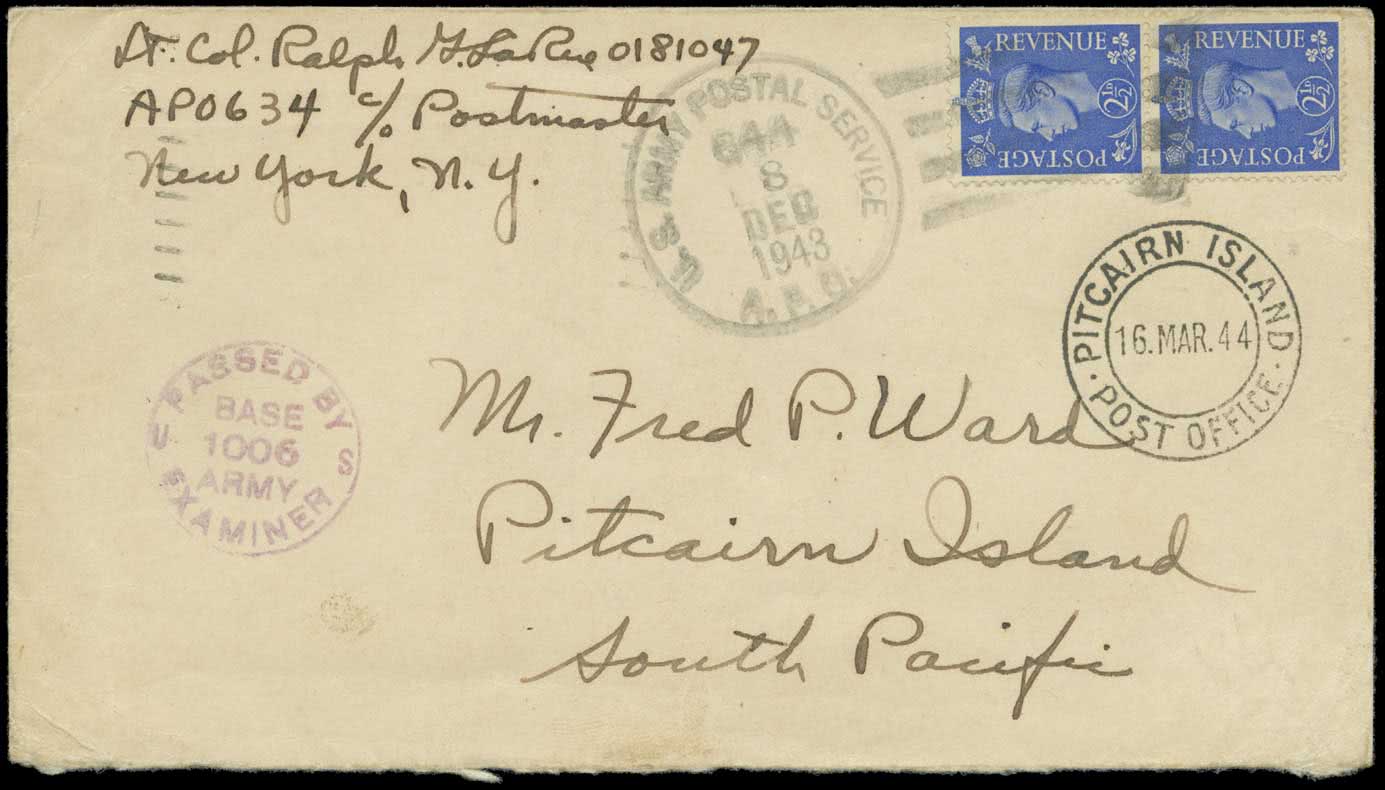 Lt. Col. Ralph G. LaRue 0181047
APO 634 c/o Postmaster
New York, N.Y.
U. S. ARMY POSTAL SERVICE
644
8
DEC
1943
A. P. O.
REVENUE
2½D
POSTAGE
REVENUE
2½D
POSTAGE
PITCAIRN ISLAND
16.MAR.44
POST OFFICE
PASSED BY
U S
BASE
1006
ARMY
EXAMINER
Mr. Fred P. Ward
Pitcairn Island
South Pacific